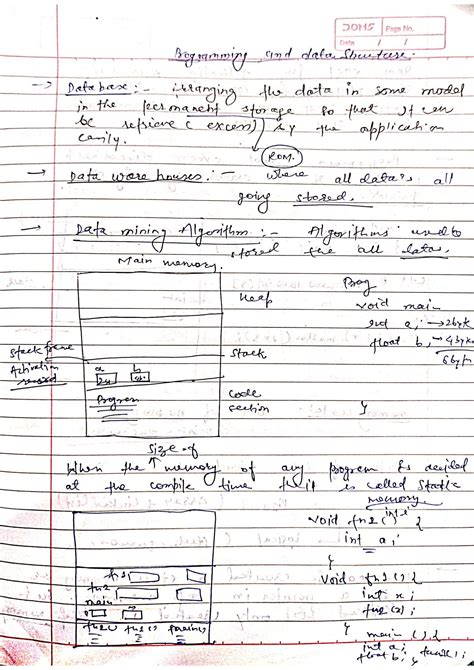 DOMS Page No.
Date / /
Programming and data Structure.
→ Database :- arranging the data in some model
in the permanent storage so that it can
be retrieve (excess) by the application
easily.
ROM.
→ Data ware houses :- where all data's all
going stored.
→ Data mining Algorithm :- Algorithms used to
stored the all datas.
Main memory.
Heap
Prog
void main
int a ; → 2byte
float b, → 4byte
6byte
}
Stack frame
Stack
Activation record
a b
Program
Code section
size of
When the ↑ memory of any program is decided
at the compile time then it is called static
memory
void fn2 (int i) {
int a ;
}
void fn1 () {
int x ;
fn2 (x) ;
}
main () {
int a ;
float b ; fun1() ;
fn2
main
fn2() fn1() main()